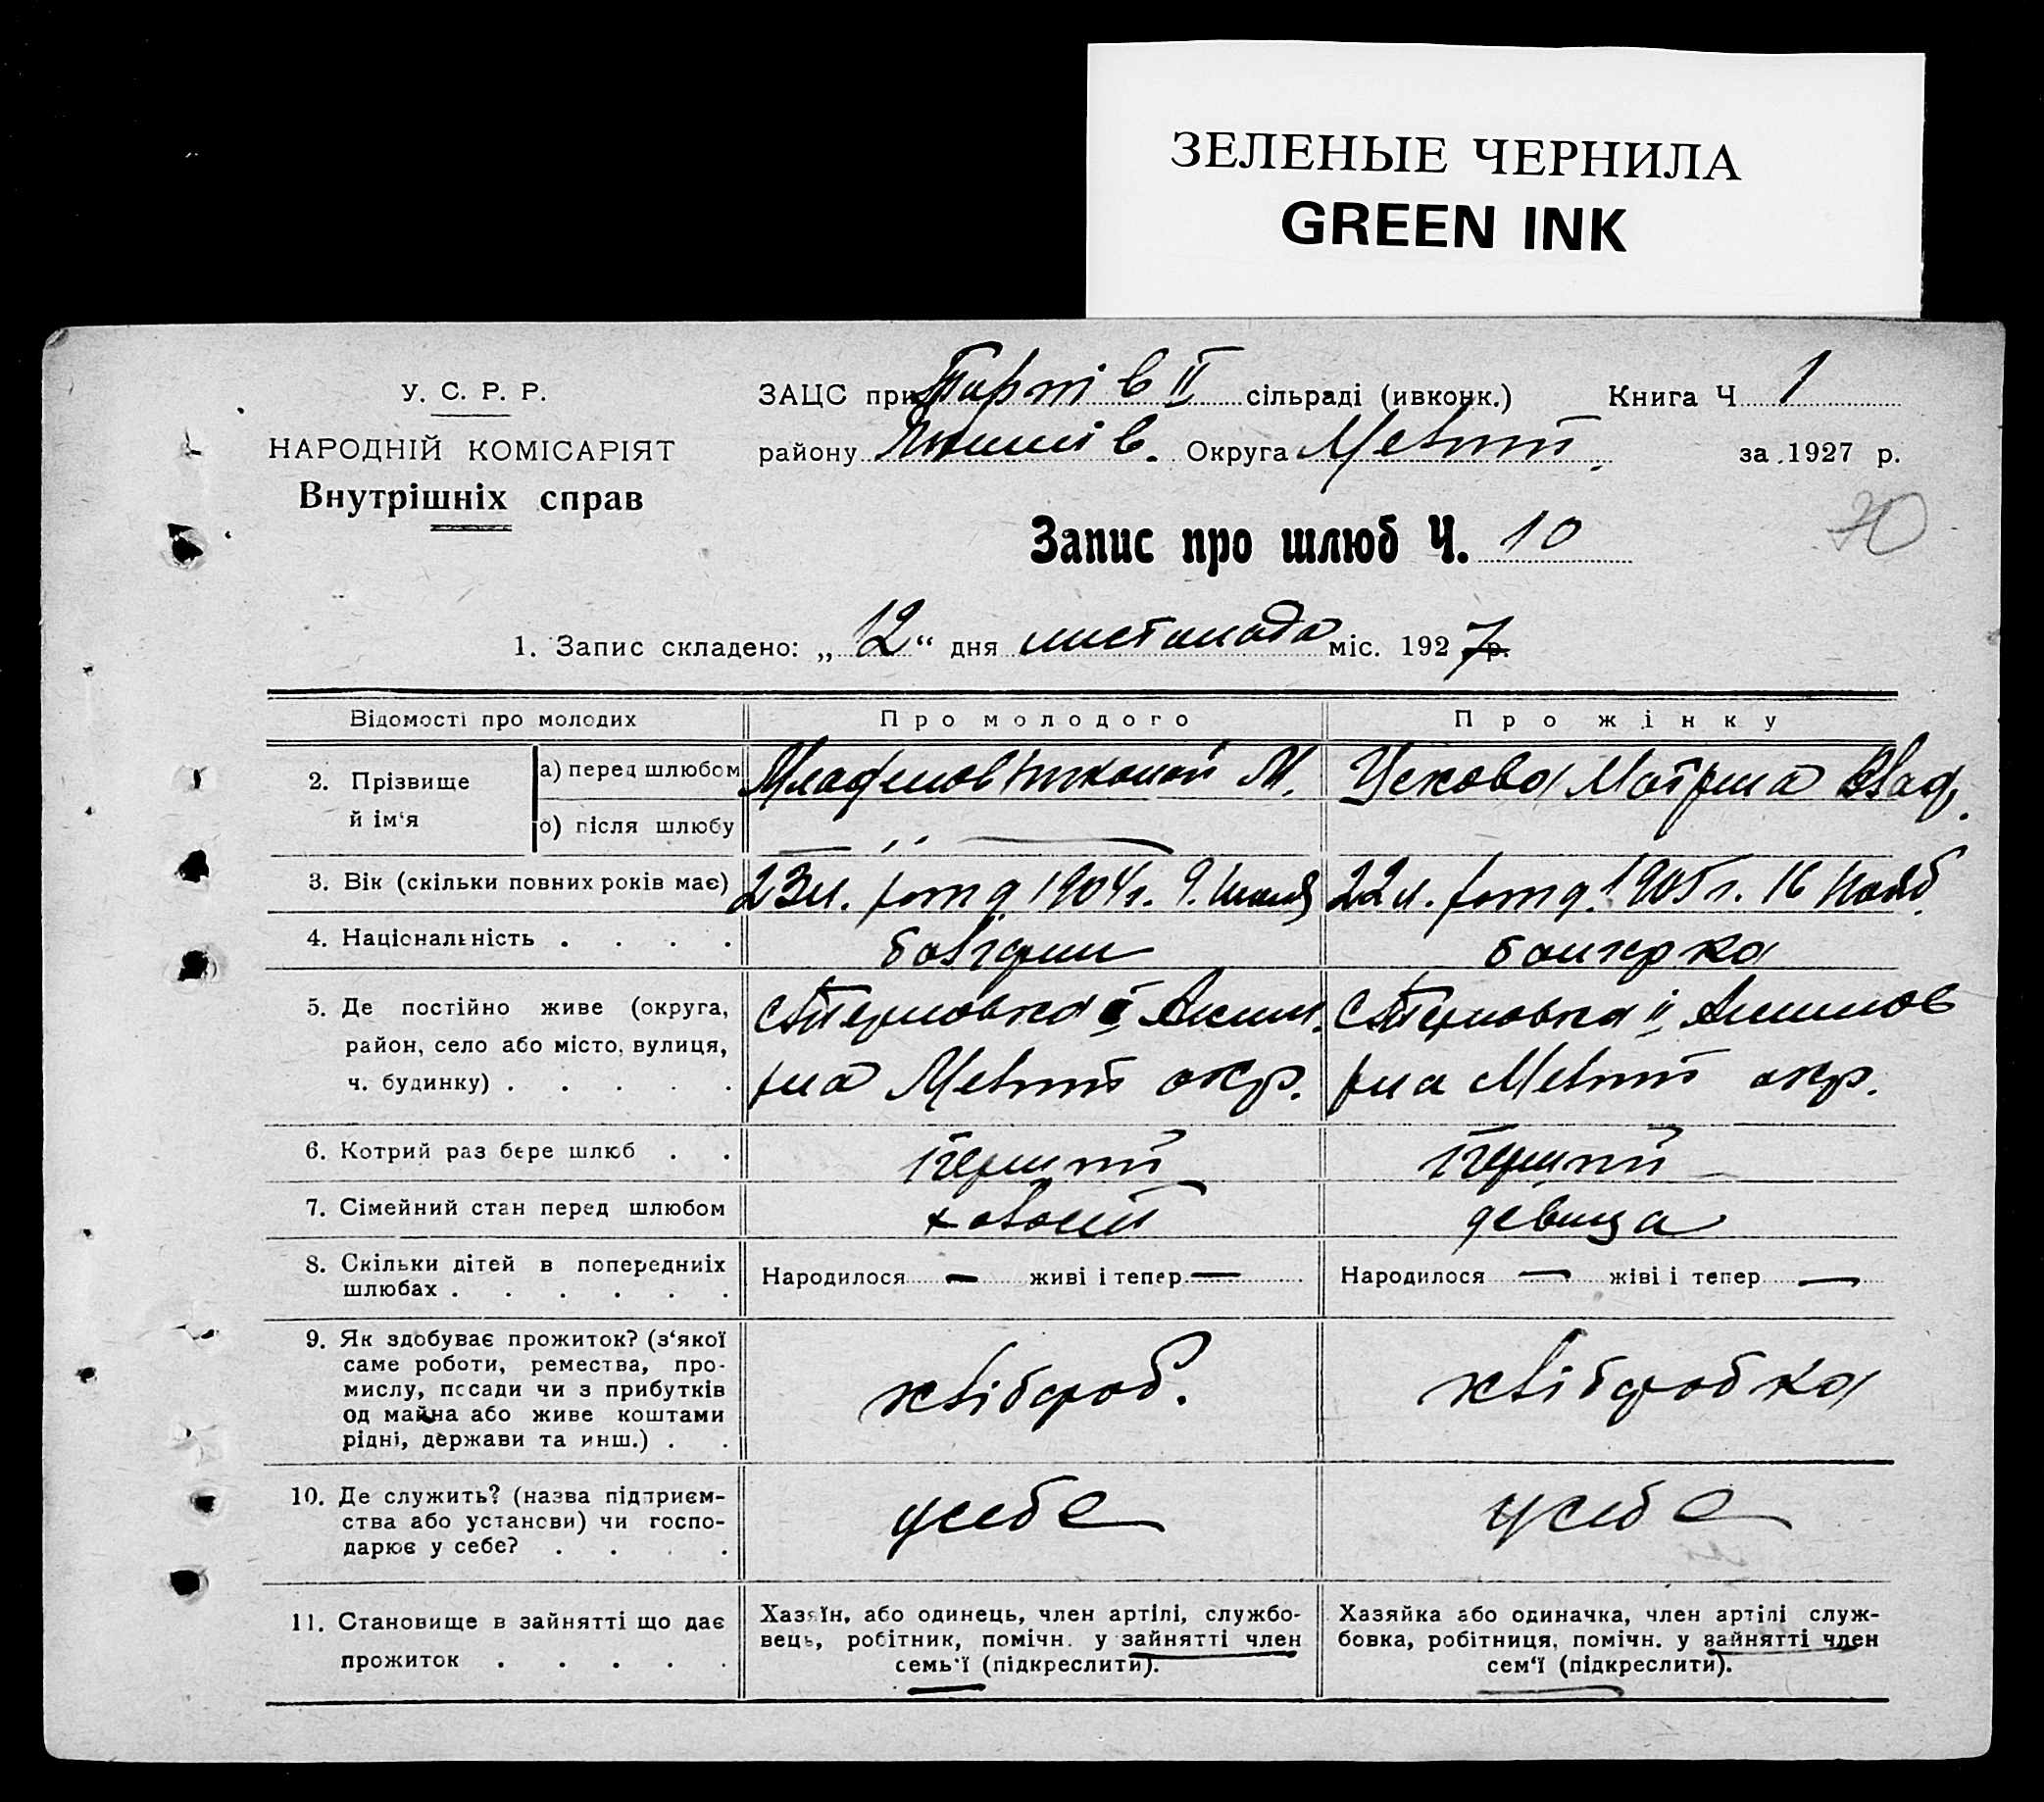 ЗЕЛЕНЫЕ ЧЕРНИЛА
GREEN INK
У. С. Р. Р.
НАРОДНІЙ КОМІСАРІЯТ
Внутрішніх справ
ЗАЦС при II сільраді (ивконк.) Книга Ч 1
району Округа за 1927 р.
70
Запис про шлюб Ч. 10
1. Запис складено: „ 12 “ дня листопада міс. 1927 р.
Відомості про молодих
Про молодого
Про жінку
2. Прізвище й ім'я
а) перед шлюбом
Младенов Николай М.
Ускова Мотрина Влад.
б) після шлюбу
— ,, —
3. Вік (скільки повних років має)
23 л. 1904 г. 9.
22 л. 1905 г. 16 нояб.
4. Національність . . . .
болгарин
болгерка
5. Де постійно живе (округа,
район, село або місто, вулиця,
ч. будинку) . . . . .
с Терновка II Аким.
р-на Меліт окр.
с Терновка II Акимов
р-на Меліт окр.
6. Котрий раз бере шлюб . .
перший
перший
7. Сімейний стан перед шлюбом
холостий
девица
8. Скільки дітей в попередниіх
шлюбах . . . . . .
Народилося — живі і тепер —
Народилося — жіві і тепер —
9. Як здобуває прожиток? (з'якої
саме роботи, ремества, про-
мислу, посади чи з прибутків
од майна або живе коштами
рідні, держави та инш.) . .
хлібороб.
хліборобка
10. Де служить? (назва підприєм-
ства або установи) чи госпо-
дарює у себе? . . . .
у себе
у себе
11. Становище в зайнятті що дає
прожиток . . . . .
Хазяїн, або одинець, член артілі, службо-
вець, робітник, помічн. у зайнятті член
семь'ї (підкреслити).
Хазяйка або одиначка, член артілі служ-
бовка, робітниця, помічн. у зайнятті член
сем'ї (підкреслити).